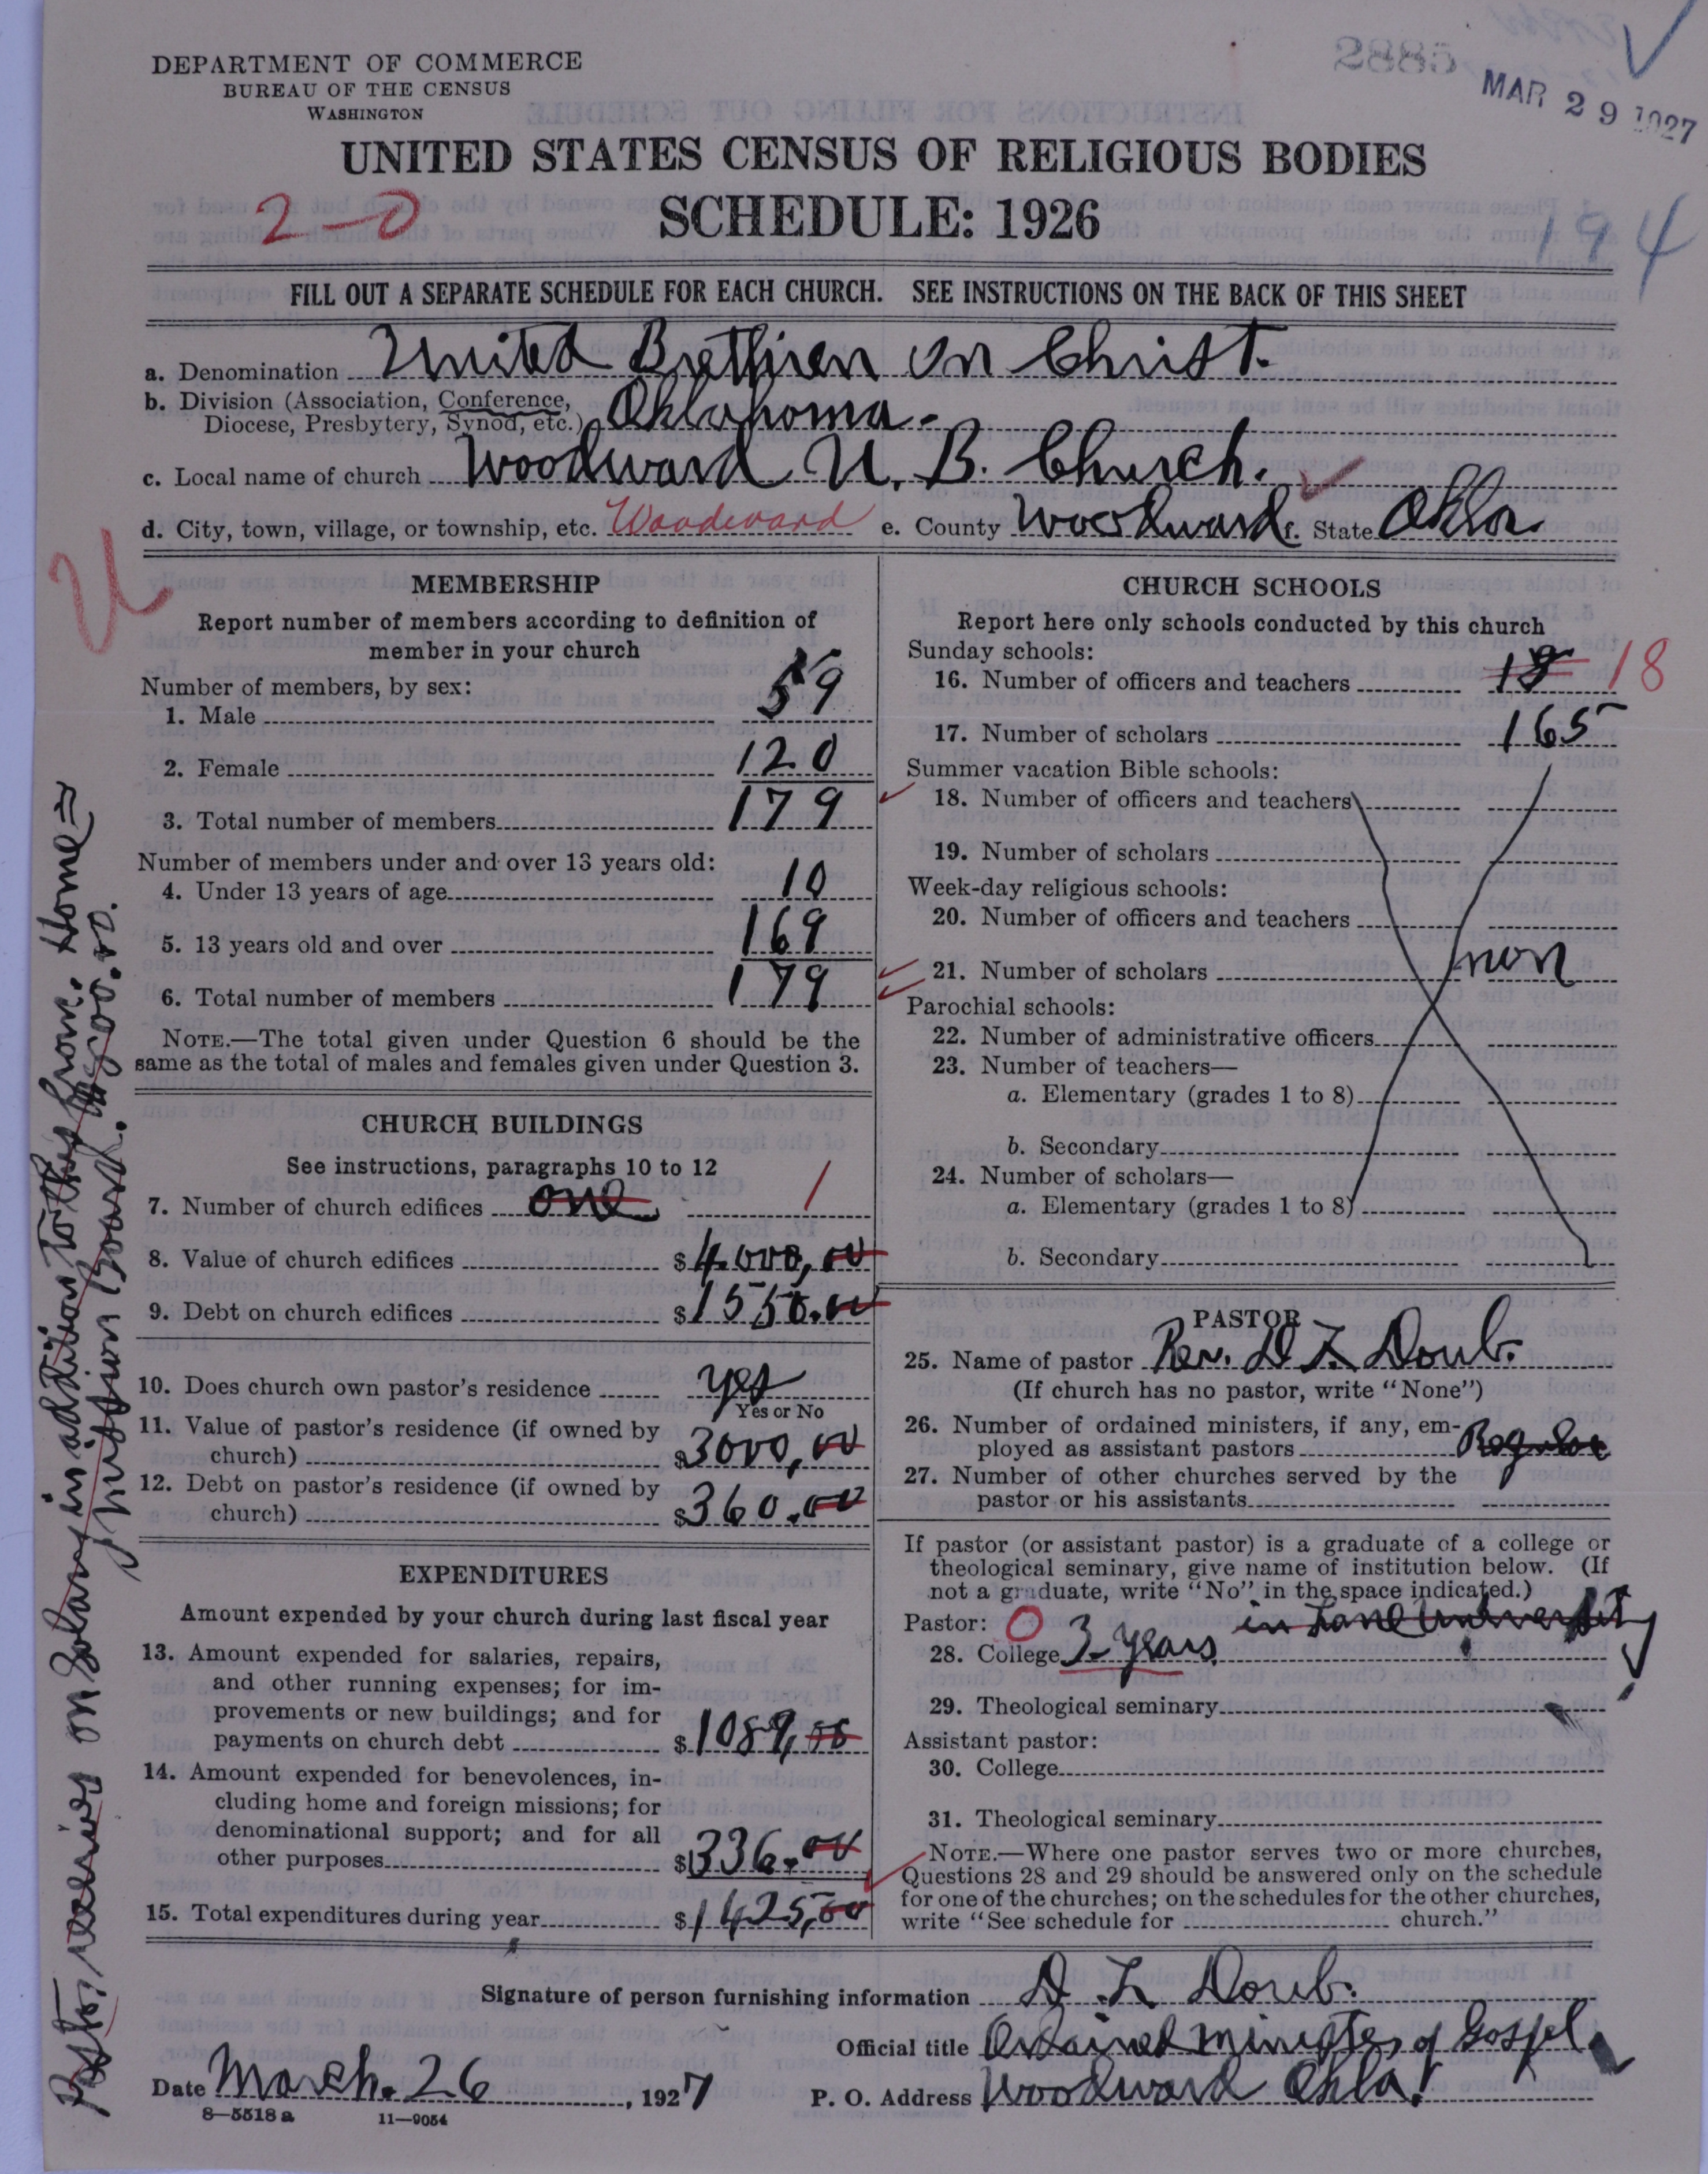 DEPARTMENT OF COMMERCE
BUREAU OF THE CENSUS
WASHINGTON
2885
MAR 29 1927
UNITED STATES CENSUS OF RELIGIOUS BODIES
2-0
SCHEDULE: 1926
194
FILL OUT A SEPARATE SCHEDULE FOR EACH CHURCH. SEE INSTRUCTIONS ON THE BACK OF THIS SHEET
a. Denomination United Brethren in Christ.
b. Division (Association, Conference,
Diocese, Presbytery, Synod, etc.) Oklahoma.
c. Local name of church Woodward U. B. Church.
d. City, town, village, or township, etc. Woodward e. County Woodward f. State Okla
MEMBERSHIP
Report number of members according to definition of
member in your church
Number of members, by sex:
1. Male 59
2. Female 120
3. Total number of members 179
Number of members under and over 13 years old:
4. Under 13 years of age 10
5. 13 years old and over 169
6. Total number of members 179
NOTE.—The total given under Question 6 should be the
same as the total of males and females given under Question 3.
CHURCH BUILDINGS
See instructions, paragraphs 10 to 12
7. Number of church edifices one 1
8. Value of church edifices $4000,00
9. Debt on church edifices $1550.00
10. Does church own pastor's residence yes
Yes or No
11. Value of pastor's residence (if owned by
church) $3000,00
12. Debt on pastor's residence (if owned by
church) $360.00
EXPENDITURES
Amount expended by your church during last fiscal year
13. Amount expended for salaries, repairs,
and other running expenses; for im-
provements or new buildings; and for
payments on church debt $1089,00
14. Amount expended for benevolences, in-
cluding home and foreign missions; for
denominational support; and for all
other purposes $336.00
15. Total expenditures during year $1425,00
CHURCH SCHOOLS
Report here only schools conducted by this church
Sunday schools:
16. Number of officers and teachers 18 18
17. Number of scholars 165
Summer vacation Bible schools:
18. Number of officers and teachers
19. Number of scholars
Week-day religious schools:
20. Number of officers and teachers
21. Number of scholars non
Parochial schools:
22. Number of administrative officers
23. Number of teachers—
a. Elementary (grades 1 to 8)
b. Secondary
24. Number of scholars—
a. Elementary (grades 1 to 8)
b. Secondary
PASTOR
25. Name of pastor Rev. D L Doub.
(If church has no pastor, write "None")
26. Number of ordained ministers, if any, em-
ployed as assistant pastors Regular
27. Number of other churches served by the
pastor or his assistants
If pastor (or assistant pastor) is a graduate of a college or
theological seminary, give name of institution below. (If
not a graduate, write "No" in the space indicated.)
Pastor: 0 in Lane University
28. College 3 years
29. Theological seminary
Assistant pastor:
30. College
31. Theological seminary
NOTE.—Where one pastor serves two or more churches,
Questions 28 and 29 should be answered only on the schedule
for one of the churches; on the schedules for the other churches,
write "See schedule for church."
Signature of person furnishing information D. L Doub.
Official title Ordained minister of Gospel.
Date March. 26, 1927
P. O. Address Woodward Okla.
8—5518 a 11—9054
Pastor, receives on Salary in addition to this from. Home
mission Board. $500.00.